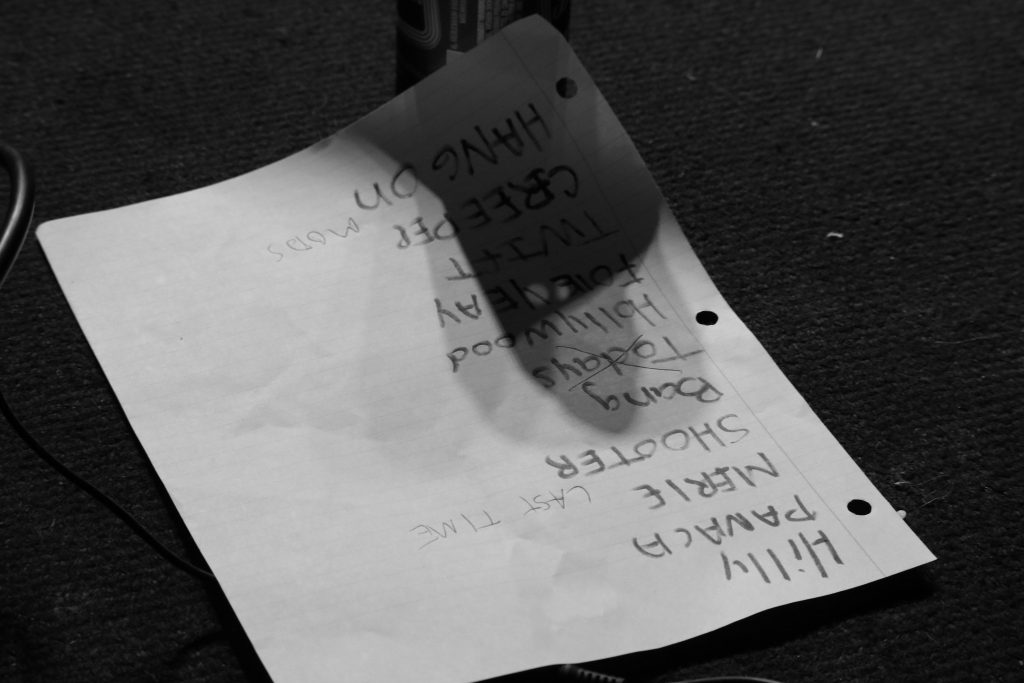 Hilly
PANACA
MERIE LAST TIME
SHOOTER
Bang
Todays
Hollywood
CREEPER MODS
HANG ON